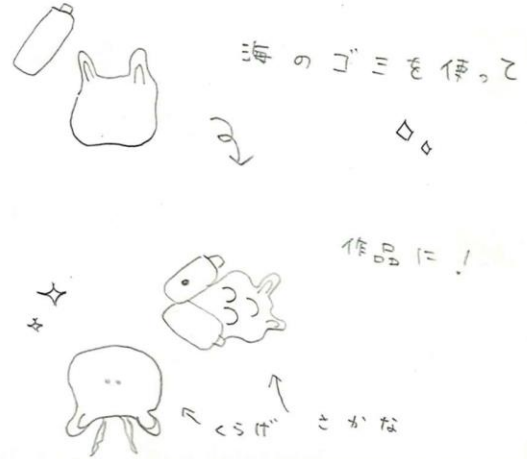 海のゴミを使って
作品に!
くらげ
さかな